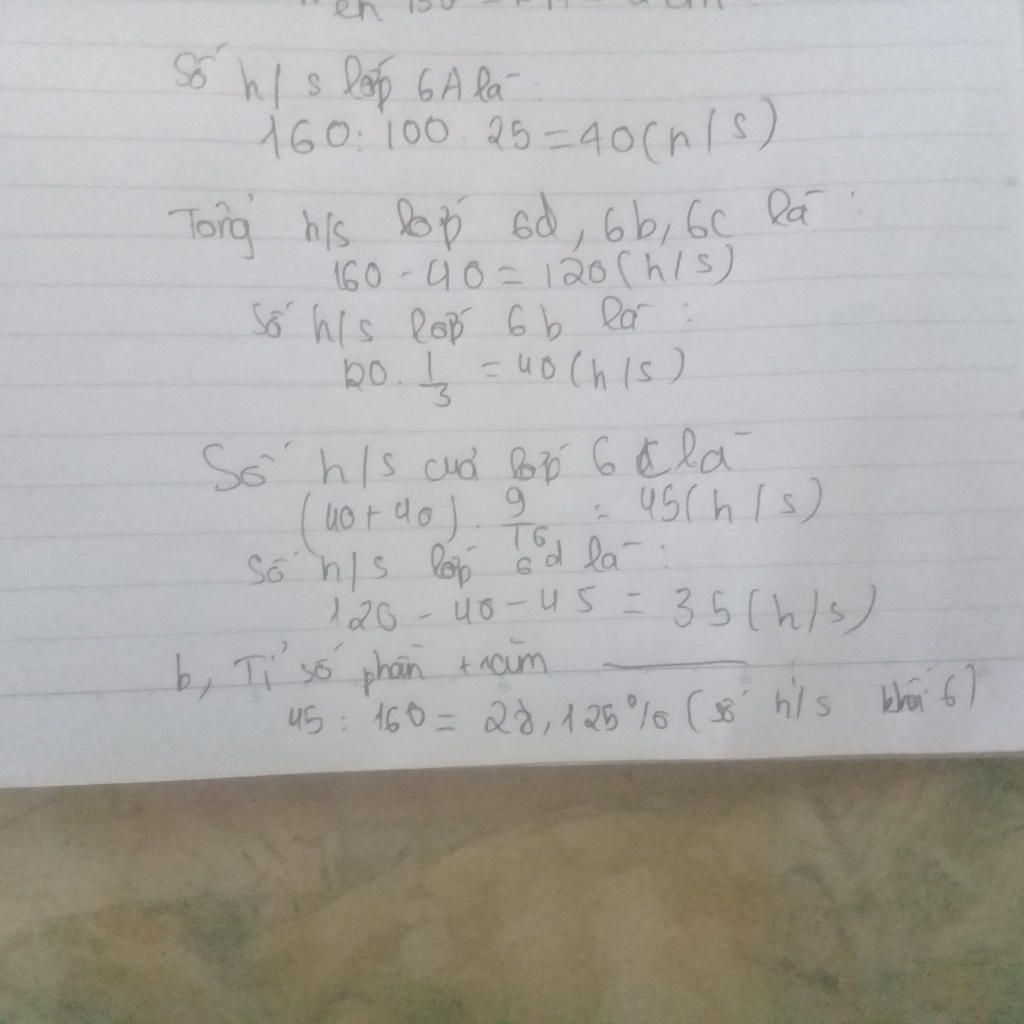 Số h/s lớp 6A là:
160:100.25=40(h/s)
Tổng h/s lớp 6d, 6b, 6c là:
160-40=120(h/s)
Số h/s lớp 6b là:
120.1/3=40(h/s)
Số h/s của lớp 6c là
(40+40).9/16=45(h/s)
Số h/s lớp 6d là:
120-40-45=35(h/s)
b, Tỉ số phần trăm
45:160=28,125%(số h/s khối 6)